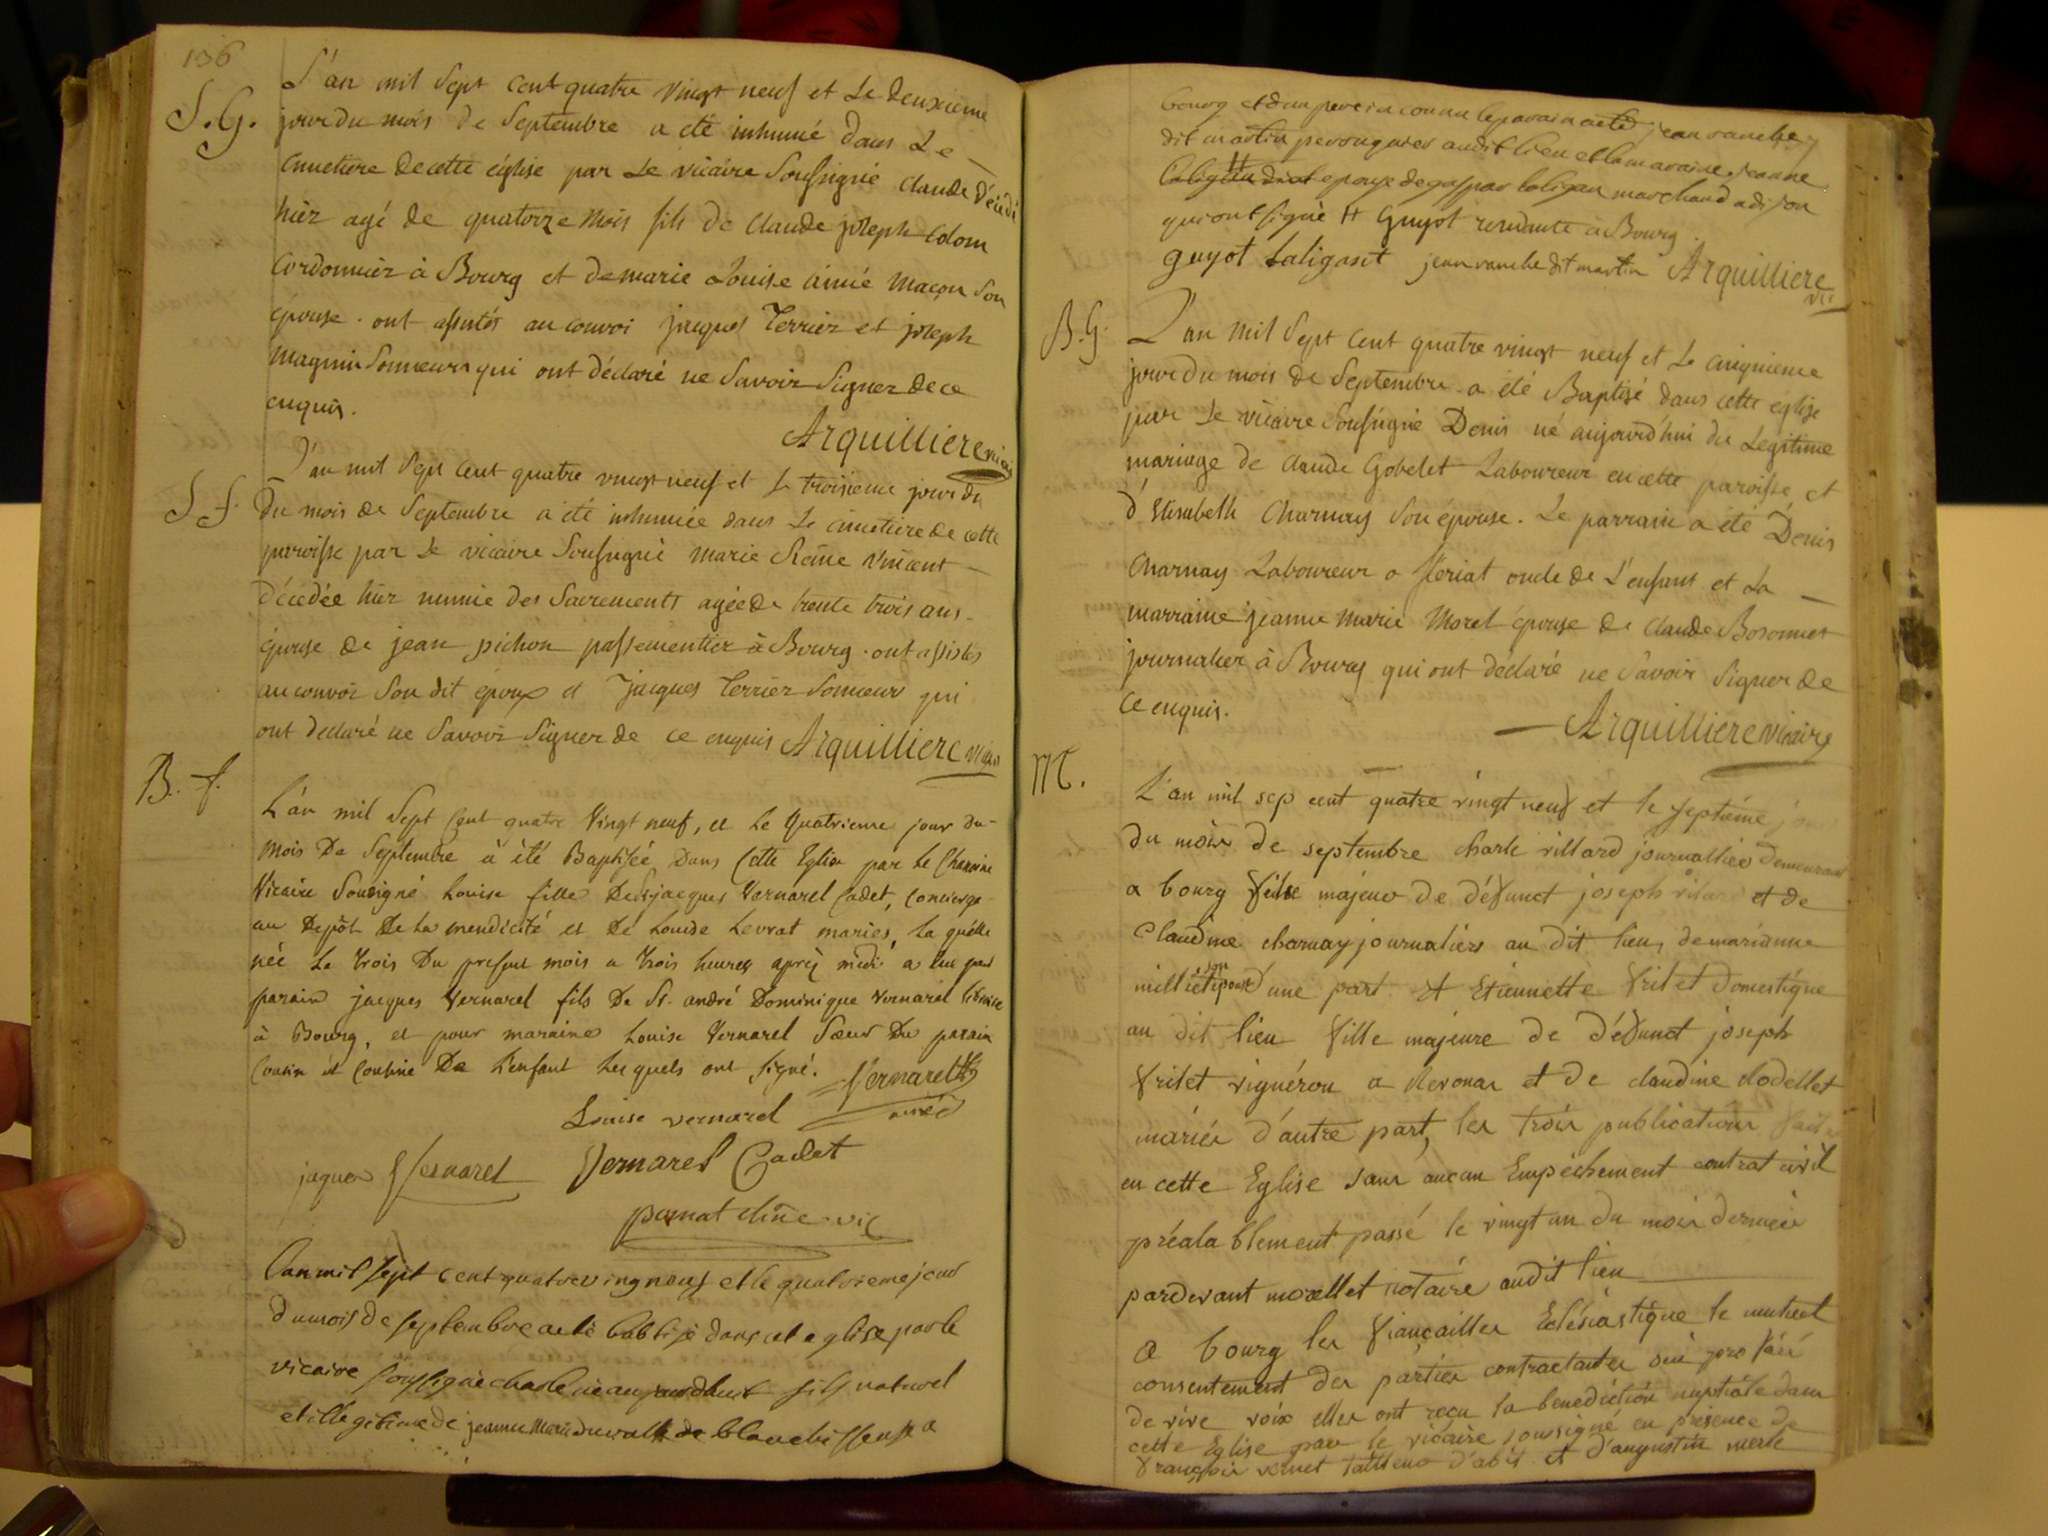 136
S.G.
L'an mil Sept Cent quatre vingt neuf et Le deuxieme
jour du mois de Septembre a eté inhumé dans Le
Cimetiere de cette église par Le vicaire Soussigné Claude décédé
hier agé de quatorze mois fils de Claude joseph Colom
Cordonnier à Bourg et de marie Louise aimée maçon Son
épouse. ont assistés au convoi jacques Terrier et joseph
magnin Sonneurs qui ont déclaré ne Savoir Signer de ce
enquis.
Arquilliere vicaire
S f.
L'an mil Sept Cent quatre vingt neuf et Le troisieme jour du
Du mois de Septembre a été inhumée dans Le cimetiere de cette
paroisse par Le vicaire Soussigné marie Reine vincent
décédée hier munie des Sacrements agée de trente trois ans
épouse de jean pichon passementier à Bourg. ont assistés
au convoi Son dit époux et jacques Terrier Sonneur qui
ont declaré ne Savoir Signer de ce enquis Arquilliere vicaire
B. f.
L'an mil Sept Cent quatre Vingt neuf, et Le quatrieme jour du
mois De Septembre à èté Baptisée Dans Cette Eglise par Le Chanoine
Vicaire Sousigné Louise fille De jacques Vernarel Cadet, Concierge
au Depôt De La mendicité et De Louise Levrat mariés, La quélle
néé Le trois Du present mois a trois heures après midi a eu pour
parain jacques Vernarel fils De Sr. andré Dominique Vernarel
à Bourg, et pour maraine Louise Vernarel Sœur Du parain
Cousin et Cousine De L'enfant Les quels ont signé. Vernarel
Louise vernarel
ainé
jaques Vernarel Vernarel Cadet
vic
Lan mil sept cent quatre ving neuf et le quatrieme jour
du mois de septembre a eté babtisé dans cet eglise par le
vicaire soussigné charle né aujourdhuit fils naturel
et illegitime de jeanne Marie blanchisseuse a
bourg et dun pere inconnu le parain a eté jean vanche
dit martin perouquier audit lieu et la maraine jeanne
epouse de gaspar laligan marchand a dijon
qui ont signé # Guyot residante a Bourg.
guyot Laligant jean vanche dit martin Arquilliere
vic
B.G.
L'an Mil Sept Cent quatre vingt neuf et Le cinquieme
jour du mois de Septembre a été Baptisé dans cette eglise
par Le vicaire Soussigné Denis né aujourd'hui du Legitime
mariage de Claude Gobelet Laboureur en cette paroisse et
d'Elisabeth Charnay Son épouse. Le parrain a été Denis
Charnay Laboureur a fleriat oncle de L'enfant et La
marraine jeanne marie Morel épouse de Claude Bosonnet
journalier à Bourg qui ont déclaré ne Savoir Signer de
Ce enquis.
Arquilliere vicaire
M.
L'an mil sep cent quatre vingt neuf et le septiéme jour
du mois de septembre charle villard journallier demeurant
a bourg fils majeur de défunct joseph vilar et de
Claudine charnay journaliers au dit lieu, de marianne
milliet son epouse d'une part. et Etiennette frilet domestique
au dit lieu fille majeure de défunct joseph
frilet vignéron a Revonar et de claudine Rodellet
mariés d'autre part, les trois publications faites
en cette Eglise sans aucun Empéchement contrat civil
préalablement passé le vingt un du mois dernier
pardevant morellet notaire audit lieu
a bourg les fiançailles Eclésiastique le mutuel
consentement des parties contractantes
de vive voix elles ont reçu la benediction nuptiale dans
cette Eglise par le vicaire soussigné en présence de
françois vernet tailleur d'abit et d'augustin merle